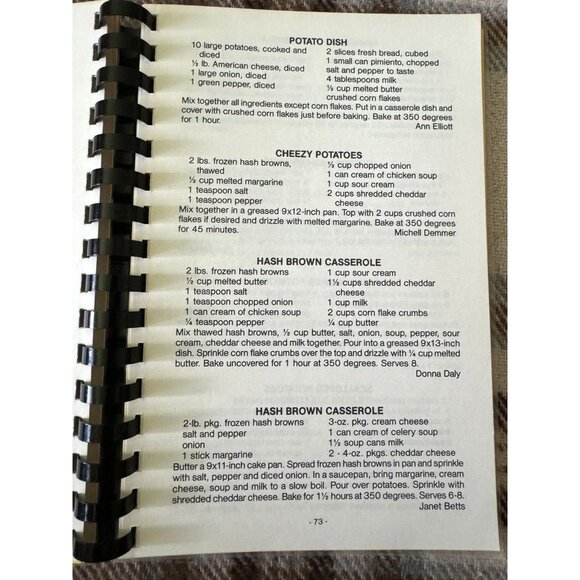 POTATO DISH
10 large potatoes, cooked and
diced
½ lb. American cheese, diced
1 large onion, diced
1 green pepper, diced
2 slices fresh bread, cubed
1 small can pimiento, chopped
salt and pepper to taste
4 tablespoons milk
½ cup melted butter
crushed corn flakes
Mix together all ingredients except corn flakes. Put in a casserole dish and
cover with crushed corn flakes just before baking. Bake at 350 degrees
for 1 hour.
Ann Elliott
CHEEZY POTATOES
2 lbs. frozen hash browns,
thawed
½ cup melted margarine
1 teaspoon salt
1 teaspoon pepper
½ cup chopped onion
1 can cream of chicken soup
1 cup sour cream
2 cups shredded cheddar
cheese
Mix together in a greased 9x12-inch pan. Top with 2 cups crushed corn
flakes if desired and drizzle with melted margarine. Bake at 350 degrees
for 45 minutes.
Michell Demmer
HASH BROWN CASSEROLE
2 lbs. frozen hash browns
½ cup melted butter
1 teaspoon salt
1 teaspoon chopped onion
1 can cream of chicken soup
¼ teaspoon pepper
1 cup sour cream
1½ cups shredded cheddar
cheese
1 cup milk
2 cups corn flake crumbs
¼ cup butter
Mix thawed hash browns, ½ cup butter, salt, onion, soup, pepper, sour
cream, cheddar cheese and milk together. Pour into a greased 9x13-inch
dish. Sprinkle corn flake crumbs over the top and drizzle with ¼ cup melted
butter. Bake uncovered for 1 hour at 350 degrees. Serves 8.
Donna Daly
HASH BROWN CASSEROLE
2-lb. pkg. frozen hash browns
salt and pepper
onion
1 stick margarine
3-oz. pkg. cream cheese
1 can cream of celery soup
1½ soup cans milk
2 - 4-oz. pkgs. cheddar cheese
Butter a 9x11-inch cake pan. Spread frozen hash browns in pan and sprinkle
with salt, pepper and diced onion. In a saucepan, bring margarine, cream
cheese, soup and milk to a slow boil. Pour over potatoes. Sprinkle with
shredded cheddar cheese. Bake for 1½ hours at 350 degrees. Serves 6-8.
Janet Betts
- 73 -